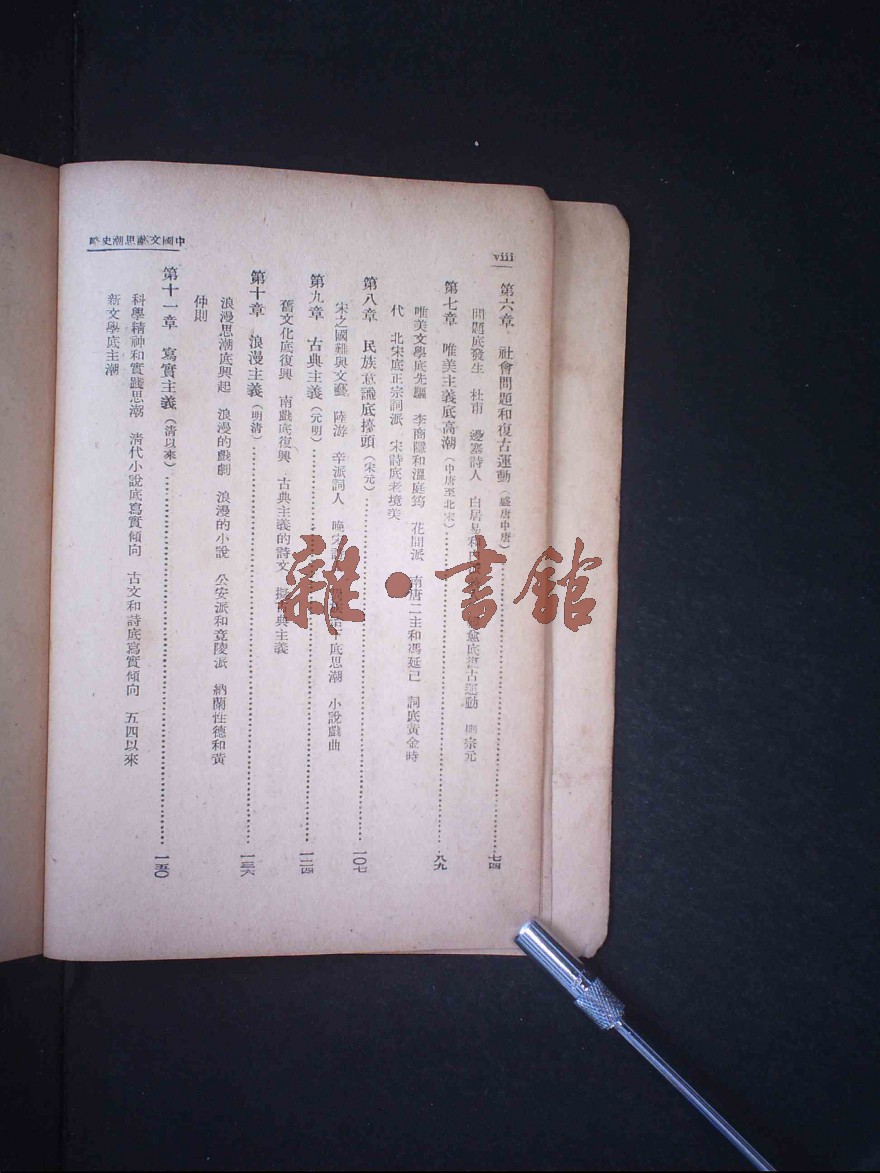 中國文藝思潮史略
viii
第六章 社會問題和復古運動(盛唐中唐)……七四
問題底發生 杜甫 邊塞詩人 白居易和 底復古運動 柳宗元
第七章 唯美主義底高潮(中唐至北宋)……八九
唯美文學底先驅 李商隱和溫庭筠 花間派 南唐二主和馮延已 詞底黃金時
代 北宋底正宗詞派 宋詩底老境美
第八章 民族意識底擡頭(宋元)……一〇七
宋之國難與文藝 陸游 辛派詞人 晚宋 下底思潮 小說戲曲
第九章 古典主義(元明)……一二四
舊文化底復興 南戲底復興 古典主義的詩文 擬古典主義
第十章 浪漫主義(明清)……一三六
浪漫思潮底興起 浪漫的戲劇 浪漫的小說 公安派和竟陵派 納蘭性德和黃
仲則
第十一章 寫實主義(清以來)……一五〇
科學精神和實踐思潮 清代小說底寫實傾向 古文和詩底寫實傾向 五四以來
新文學底主潮
雜·書館